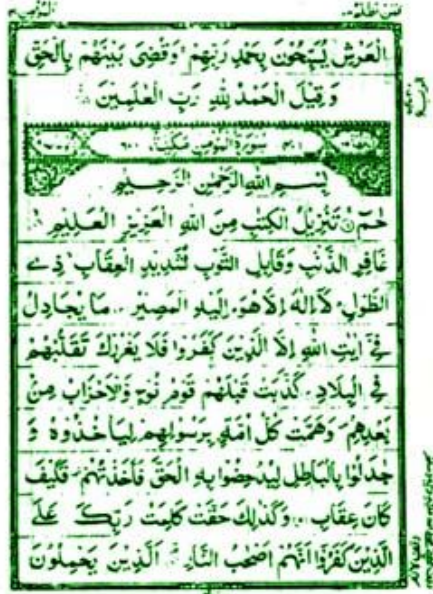 فمن اظلم ٢٤
المؤمن ٤٠
الْعَرْشِ يُسَبِّحُوْنَ بِحَمْدِ رَبِّهِمْ وَقُضِىَ بَيْنَهُمْ بِالْحَقِّ
وَقِيْلَ الْحَمْدُ لِلّٰهِ رَبِّ الْعٰلَمِيْنَ
سُوْرَةُ الْمُؤْمِنِ مَكِّيَّةٌ
بِسْمِ اللّٰهِ الرَّحْمٰنِ الرَّحِيْمِ
حٰمٓ تَنْزِيْلُ الْكِتٰبِ مِنَ اللّٰهِ الْعَزِيْزِ الْعَلِيْمِ
غَافِرِ الذَّنْۢبِ وَقَابِلِ التَّوْبِ شَدِيْدِ الْعِقَابِ ذِى
الطَّوْلِ لَآ اِلٰهَ اِلَّا هُوَ اِلَيْهِ الْمَصِيْرُ مَا يُجَادِلُ
فِىْٓ اٰيٰتِ اللّٰهِ اِلَّا الَّذِيْنَ كَفَرُوْا فَلَا يَغْرُرْكَ تَقَلُّبُهُمْ
فِى الْبِلَادِ كَذَّبَتْ قَبْلَهُمْ قَوْمُ نُوْحٍ وَّالْاَحْزَابُ مِنْۢ
بَعْدِهِمْ وَهَمَّتْ كُلُّ اُمَّةٍۢ بِرَسُوْلِهِمْ لِيَاْخُذُوْهُ وَ
جٰدَلُوْا بِالْبَاطِلِ لِيُدْحِضُوْا بِهِ الْحَقَّ فَاَخَذْتُهُمْ فَكَيْفَ
كَانَ عِقَابِ وَكَذٰلِكَ حَقَّتْ كَلِمَتُ رَبِّكَ عَلَى
الَّذِيْنَ كَفَرُوْٓا اَنَّهُمْ اَصْحٰبُ النَّارِ اَلَّذِيْنَ يَحْمِلُوْنَ